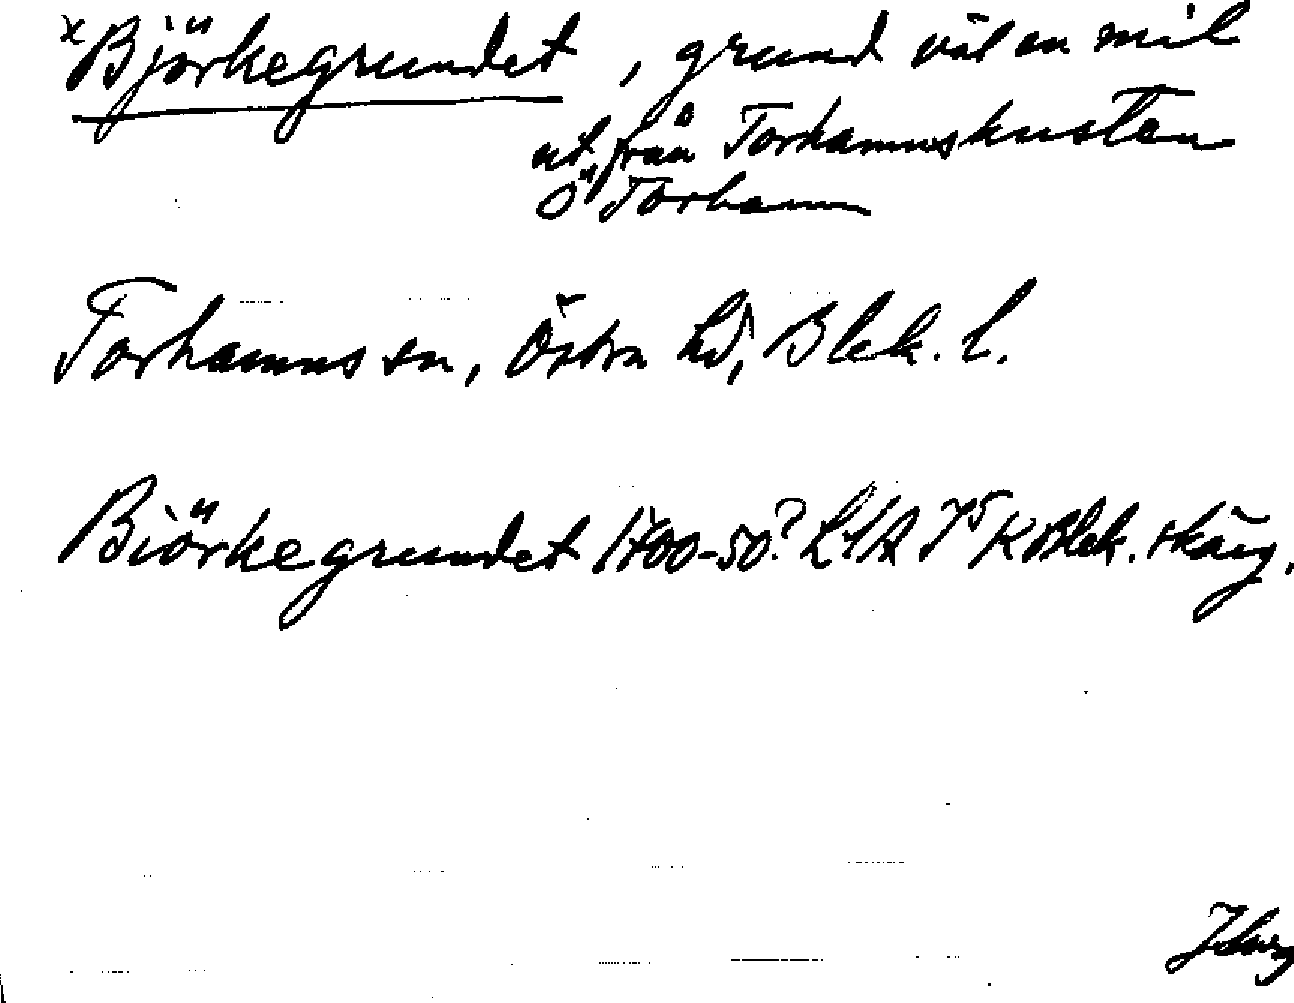 x Björkegrundet, grund väl en mil
ut från Torhamnskusten
Ö Torhamn
Torhamns sn, Östra hd, Blek. l.
Biörkegrundet 1700-50? K Blek. skärg.